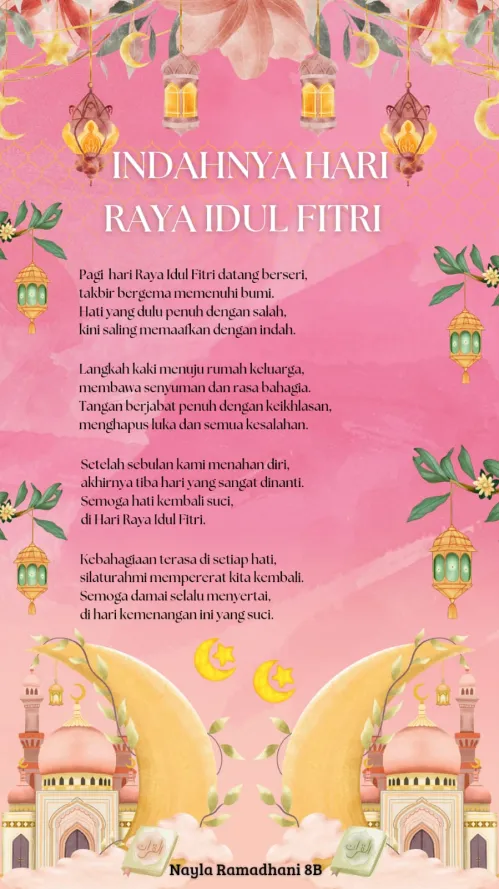 INDAHNYA HARI
RAYA IDUL FITRI
Pagi hari Raya Idul Fitri datang berseri,
takbir bergema memenuhi bumi.
Hati yang dulu penuh dengan salah,
kini saling memaafkan dengan indah.
Langkah kaki menuju rumah keluarga,
membawa senyuman dan rasa bahagia.
Tangan berjabat penuh dengan keikhlasan,
menghapus luka dan semua kesalahan.
Setelah sebulan kami menahan diri,
akhirnya tiba hari yang sangat dinanti.
Semoga hati kembali suci,
di Hari Raya Idul Fitri.
Kebahagiaan terasa di setiap hati,
silaturahmi mempererat kita kembali.
Semoga damai selalu menyertai,
di hari kemenangan ini yang suci.
Nayla Ramadhani 8B